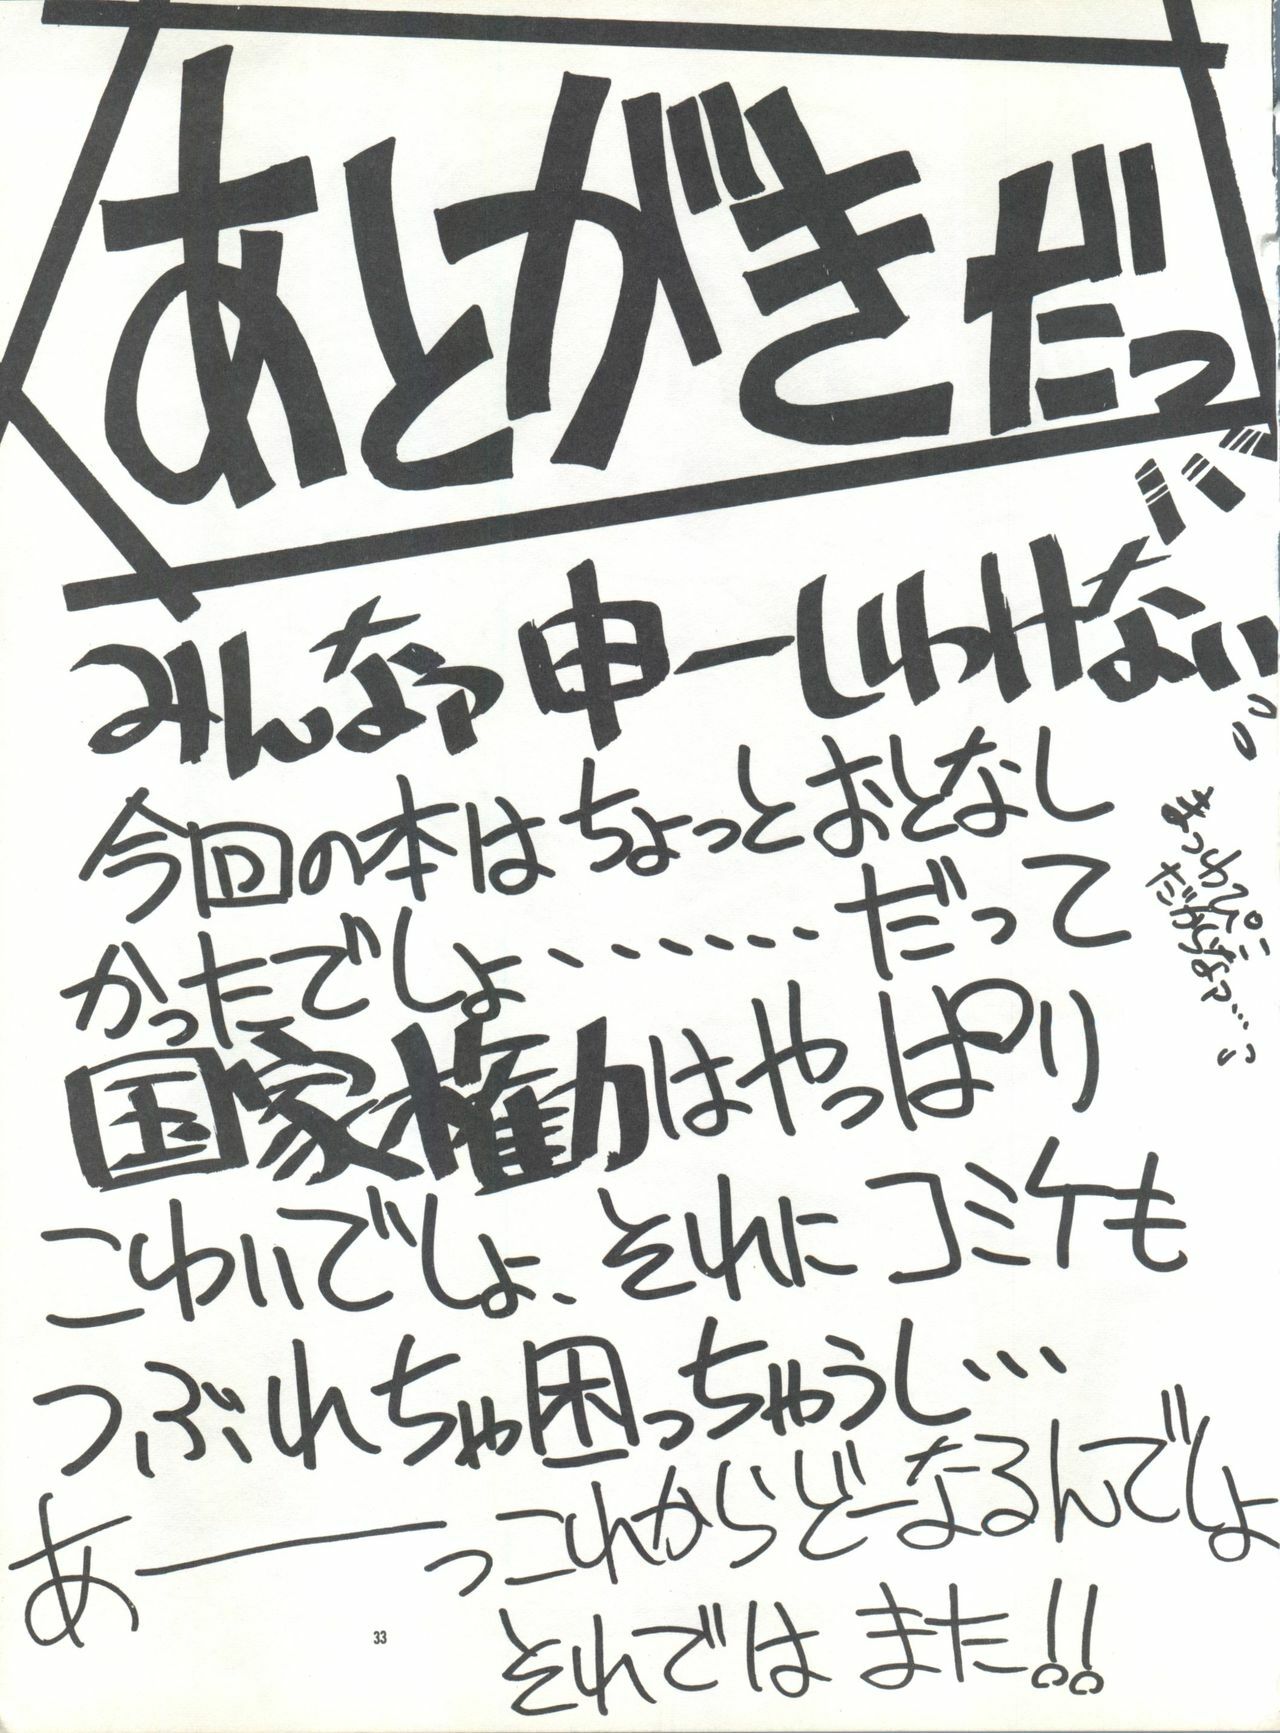 あとがきだっ!!
みんなァ申ーしわけない!!
今回の本はちょっとおとなし
かったでしょ……… だって
国家権力はやっぱり
こわいでしょ、それにコミケも
つぶれちゃ困っちゃうし…
あーーっこれからどーなるんでしょ
それでは また!!
33